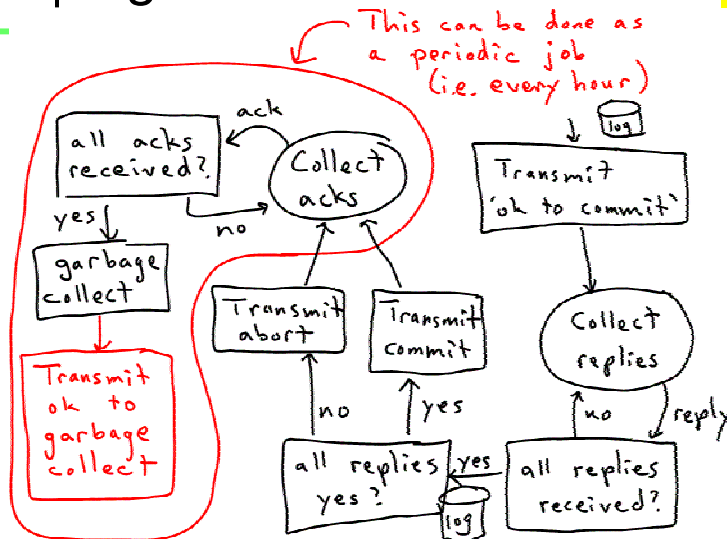 This can be done as
a periodic job
(i.e. every hour)
log
Transmit
'ok to commit'
Collect
replies
reply
no
all replies
received?
yes
all replies
yes?
log
no
yes
Transmit
abort
Transmit
commit
Collect
acks
ack
all acks
received?
no
yes
garbage
collect
Transmit
ok to
garbage
collect